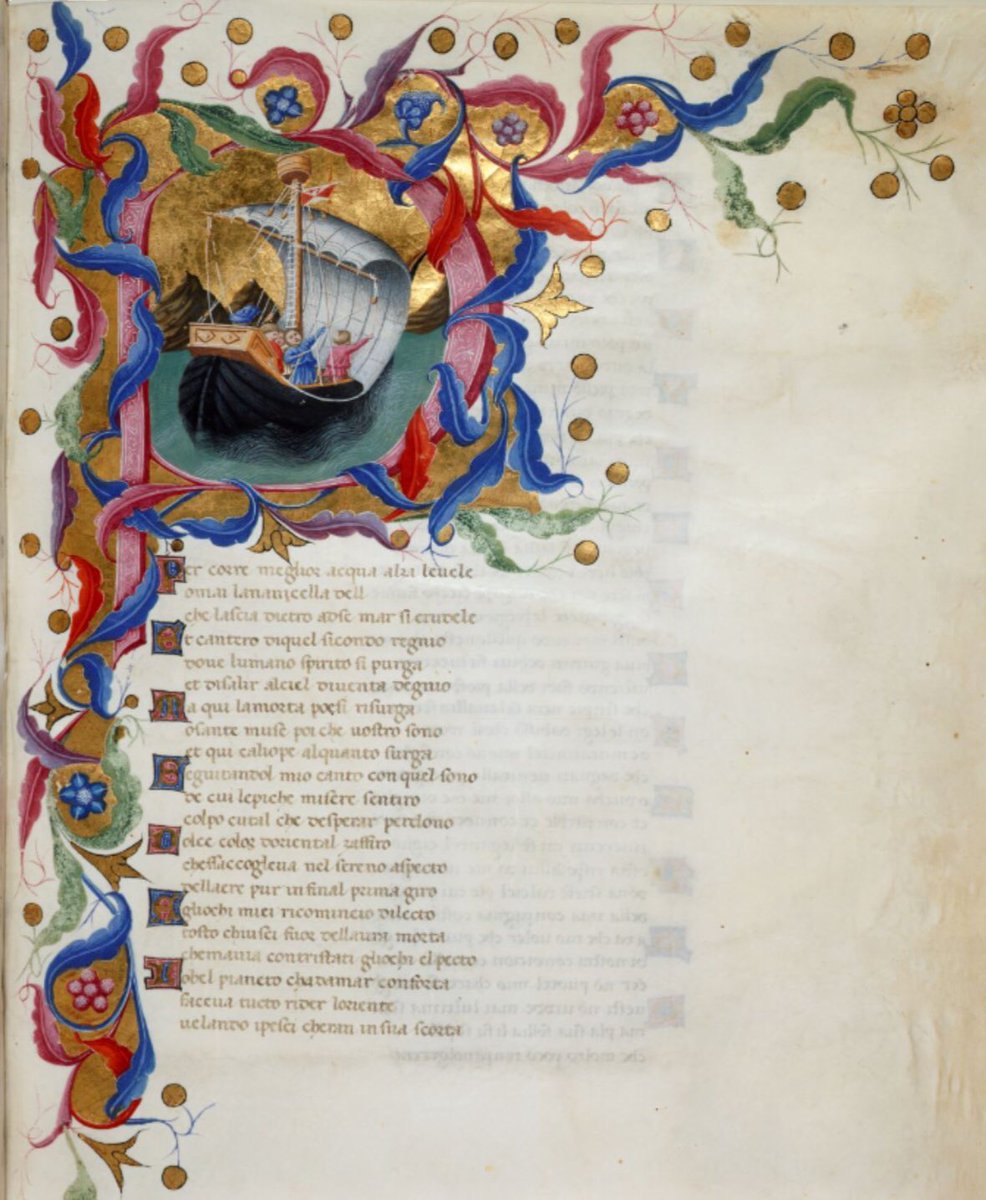 Per correr meglior acqua alza le vele
omai la navicella dell
che lascia dietro adse mar si crudele
Et cantero diquel sicondo regnio
dove lumano spirito si purga
et disalir alciel diventa degnio
Ma qui lamorta poesi risurga
osante muse poi che vostro sono
et qui caliope alquanto surga
Seguitandol mio canto con quel sono
de cui lepiche misere sentiro
colpo cutal che desperar perdono
Dolce color doriental zaffiro
cheffaccogleva nel sereno aspecto
dellaere pur infinal prima giro
Agliochi miei ricomincio dilecto
tosto chiusci fuor dellaura morta
chemavia contristati gliochi elpecto
Lobel pianeto chadamar conforta
faceva tucto rider loriente
velando ipesci cheran in sua scorta